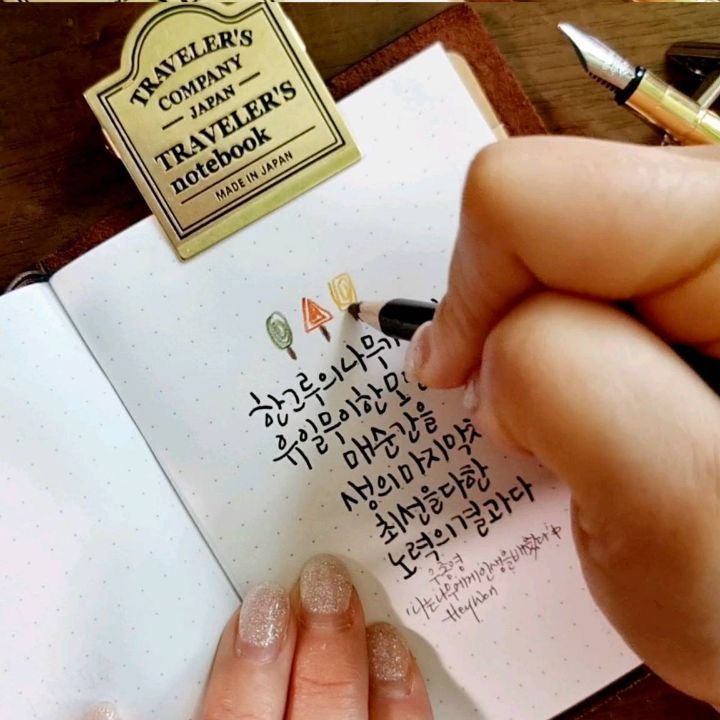 TRAVELER'S
COMPANY
JAPAN
TRAVELER'S
notebook
MADE IN JAPAN
한그루의나무가
휴일무이한모
매순간을
생의마지막처
최선을다한
노력의결과다
우종영
'나는나무에게인생을배웠다'中
HeyWon